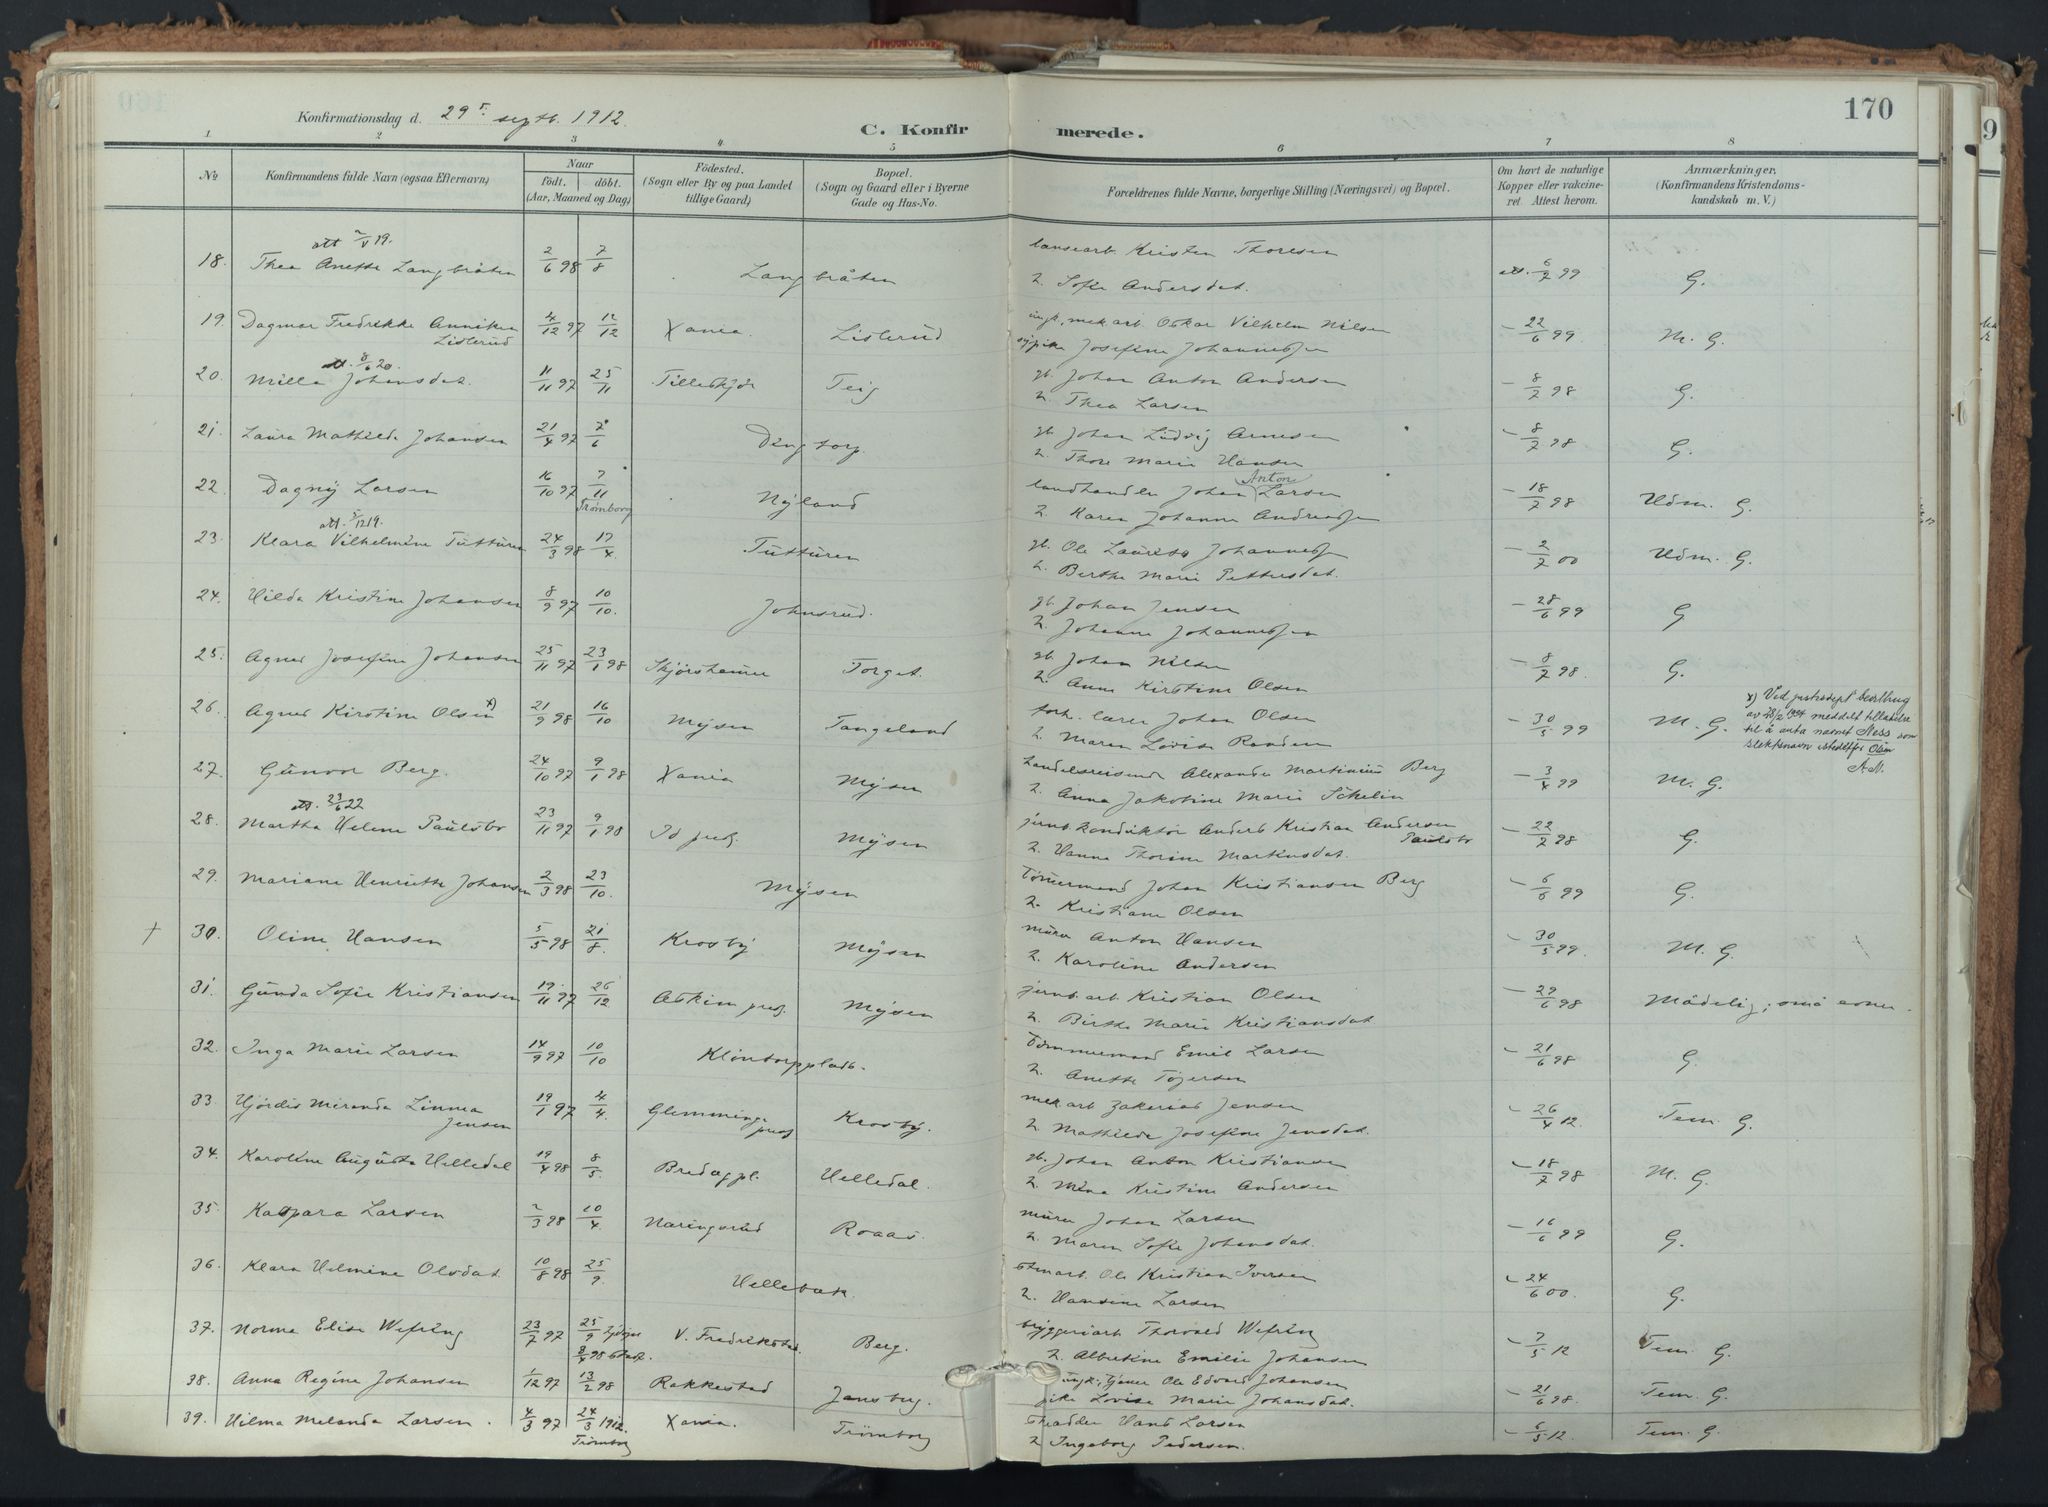 170
Konfirmationsdag d. 29 septb. 1912.
C. Konfirmerede.
1 2 3 4 5 6 7 8
No
Konfirmandens fulde Navn (ogsaa Efternavn)
Naar
födt. döbt.
(Aar, Maaned og Dag)
Födested.
(Sogn eller By og paa Landet
tillige Gaard)
Bopæl.
(Sogn og Gaard eller i Byerne
Gade og Hus-No.
Forældrenes fulde Navne, borgerlige Stilling (Næringsvei) og Bopæl.
Om havt de naturlige
Kopper eller vakcine-
ret Attest herom.
Anmærkninger,
(Konfirmandens Kristendoms-
kundskab m. V.)
18. Thea Anette Langbråten 2/6 98 7/8 Langbråten Kristen Thoresen att. 6/7 99 G.
2. Sofie Andersdat.
19. Dagmar Fredrikke Anniken 4/12 97 12/12 Xania. Listerud ungk. mek arb. Oskar Vilhelm Nilsen - 22/6 99 M. G.
Listerud
pike Josefine Johannessen
att. 8/6 20.
20. Milla Johansdat. 11/11 97 25/11 Teig gb. Johan Anton Andersen - 8/7 98 G.
2. Thea Larsen
21. Laura Mathilde Johansen 21/4 97 7/6 Dingtorp gb. Johan Ludvig Arnesen - 8/7 98 G.
2. Thore Marie Hansen
22. Dagny Larsen 16/10 97 7/11 Nyland landhandler Johan Anton Larsen - 18/7 98 Udm. G.
Trömborg
2. Karen Johanne Andreassen
att. 5/12 19.
23. Klara Vilhelmine Tutturen 24/3 98 17/4 Tutturen gb. Ole Lauritz Johannessen - 2/7 00 Udm. G.
2. Berthe Marie Pettersdat.
24. Hilda Kristine Johansen 8/9 97 10/10. Johnsrud. gb. Johan Jensen - 28/6 99 G
2. Johanne Johannessen
25. Agnes Josefine Johansen 25/11 97 23/1 98 Skjörshammer Torget. gb. Johan Nilsen - 8/7 98. G.
2. Anne Kirstine Olsen
26. Agnes Kirstine Olsen x) 21/9 98 16/10 Mysen Tangeland forh. lærer Johan Olsen - 30/5 99 M. G.
2. Maren Lovise Randem
x) Ved justisdept bevilling
av 28/2 1924 meddelt tillatelse
til å anta navnet Ness som
slektsnavn istedetfor Olsen
A.N.
27. Gunvor Berg. 24/10 97 9/1 98 Xania Mysen Handelsreisende Alexander Martinius Berg - 3/4 99 M. G.
2. Anna Jakobine Marie Schelin
att. 23/6 22
28. Martha Helene Paulsbo 23/11 97 9/1 98 Id presg. Mysen jernb. konduktör Anders Kristian Andersen Paulsbo - 22/7 98 G.
2. Hanne Thorine Markusdat.
29. Mariane Henriette Johansen 2/3 98 23/10. Mysen Tömmermand Johan Kristiansen Berg - 6/6 99 G.
2. Kristiane Olsen
† 30. Oline Hansen 5/5 98 21/8. Krosby Mysen murer Anton Hansen - 30/5 99. M. G.
2. Karoline Andersen
31. Gunda Sofie Kristiansen 19/11 97 26/12 Askim presg. Mysen jernb. arb. Kristian Olsen - 29/6 98 Mådelig; små evner.
2. Birthe Marie Kristiansdat
32. Inga Marie Larsen 14/9 97 10/10 Kluntorpplads. Tömmermand Emil Larsen - 21/6 98 G.
2. Anette Tögersen
33. Hjördis Miranda Linnea 19/1 97 4/4. Glemminge presg Krosby. mek arb Zakerias Jensen - 26/4 12. Tem. G.
Jensen
2. Mathilde Josefine Jensdat.
34. Karoline Augusta Helledal 19/4 98 8/5. Bredegpl. Helledal. gb. Johan Anton Kristiansen - 18/7 98 M. G.
2. Mina Kristine Andersen
35. Kaspara Larsen 2/3 98 10/4. Naringsrud Roaas. murer Johan Larsen - 16/6 99 G.
2. Maren Sofie Johansdat.
36. Klara Helmine Olsdat. 10/8 98 25/9. Hellebæk. stenarb. Ole Kristian Iversen - 24/6 00. G.
2. Hansine Larsen
37. Norma Elise Wefring 23/7 97 25/9 V. Fredrikstad. Berg. bryggeriarb Thorvald Wefring - 7/5 12 Tem. G.
2. Albertine Emilie Johansen
38. Anna Regine Johansen 1/12 97 13/2 98 Rakkestad Jansberg. ungk. tjener Ole Edvard Johansen - 21/6 98. Tem. G.
pike Lovise Marie Johansdat.
39. Hilma Melanda Larsen. 4/3 97 24/3 1912. Xania. Trömborg skrædder Hans Larsen - 6/5 12. Tem. G.
Trömborg
2 Ingeborg Pedersen.